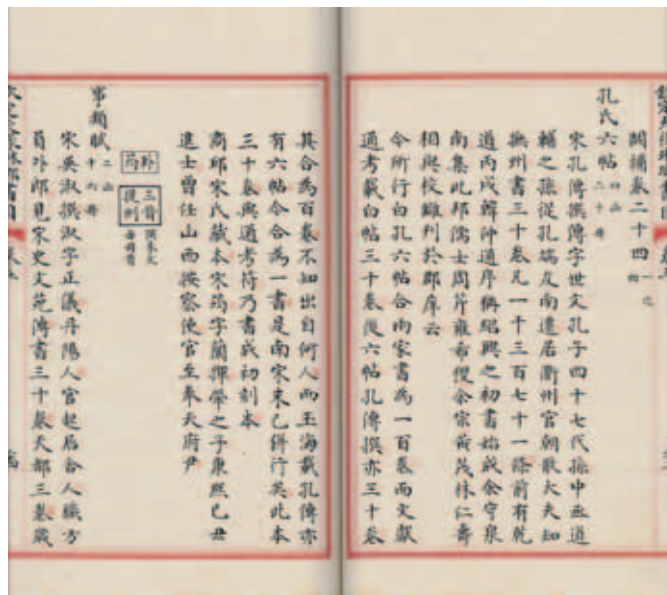 闕補卷二十四
孔氏六帖
宋孔傳撰傳字世文孔子四十七代孫中丞道
輔之孫從孔端友南遷居衢州官朝散大夫知
撫州書三十卷凡一千三百七十一條前有乾
道丙戌韓仲通序稱紹興之初書始成余守泉
南集此邦儒士周芹
相與校讎刊於郡庠云
今所行白孔六帖合兩家書為一百卷而文獻
通考載白帖三十卷後六帖孔傳撰亦三十卷
其合為百卷不知出自何人而玉海載孔傳亦
有六帖今合為一書是南宋末已併行矣此本
三十卷與通考符乃書成初刻本
商邱宋氏藏本宋筠字蘭揮犖之子康熙己丑
進士曾任山西按察使官至奉天府尹
事類賦
二函
十六冊
宋吳淑撰淑字正儀丹陽人官起居舍人職方
員外郎見宋史文苑傳書三十卷天部三卷歲